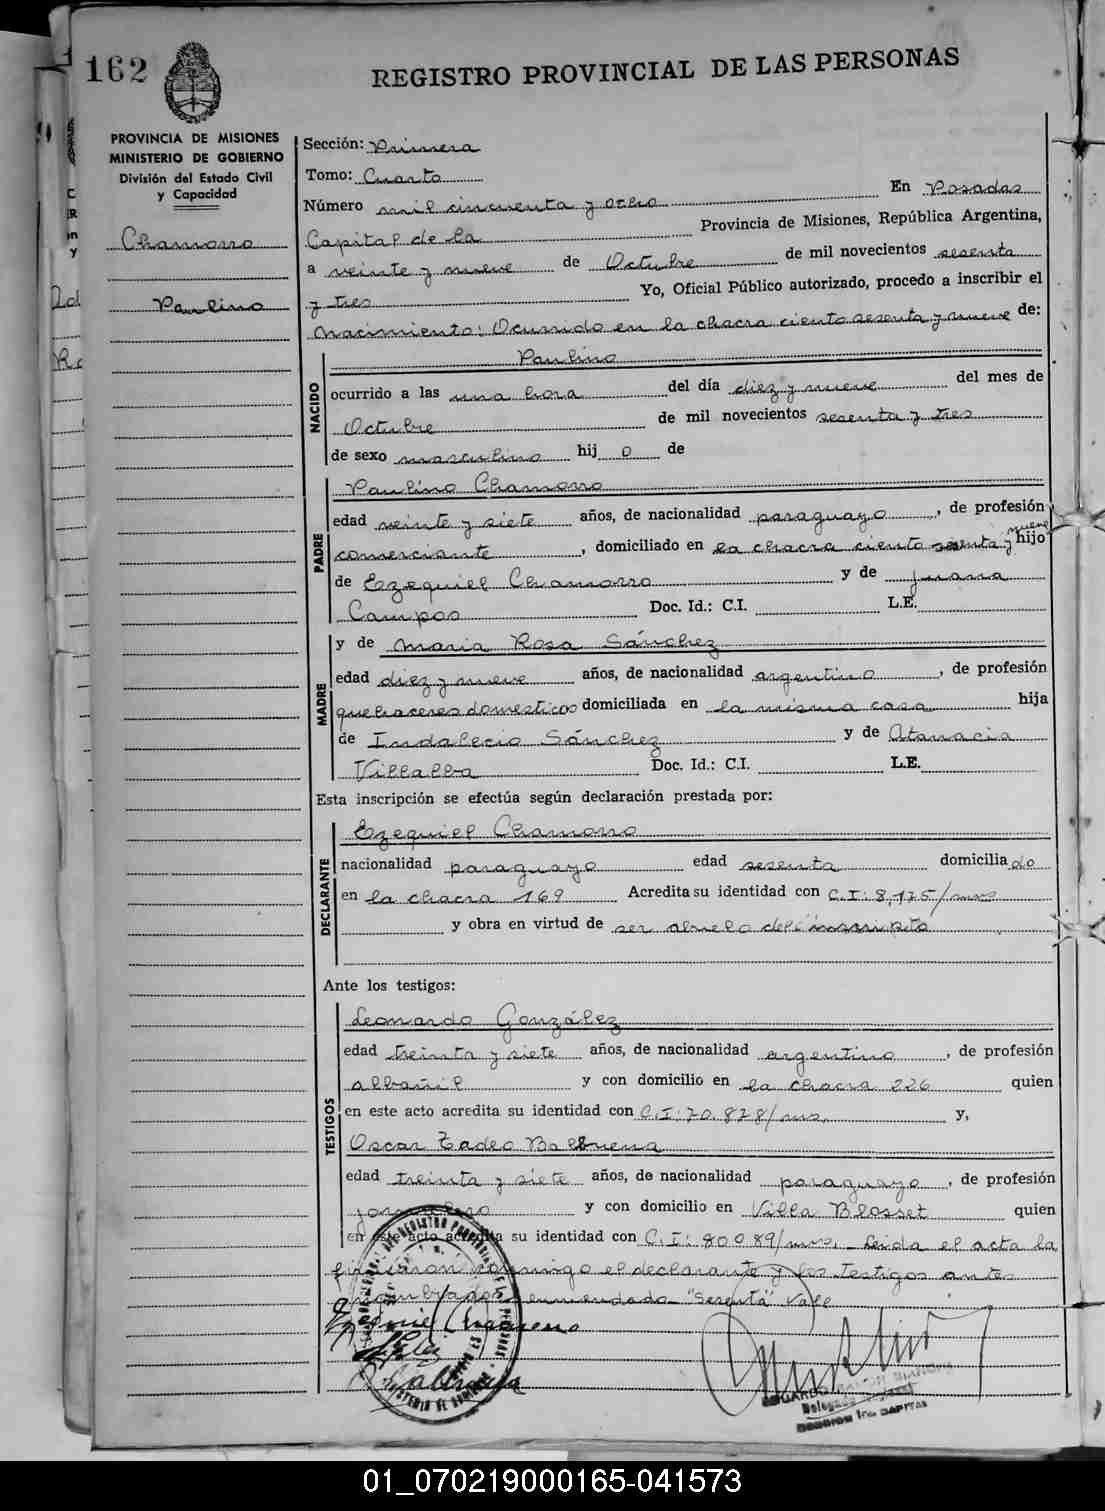 162
REGISTRO PROVINCIAL DE LAS PERSONAS
PROVINCIA DE MISIONES
MINISTERIO DE GOBIERNO
División del Estado Civil
y Capacidad
Chamorro
Paulino
Sección: Primera
Tomo: Cuarto
Número mil cincuenta y ocho En Posadas
Capital de la Provincia de Misiones, República Argentina,
a veinte y nueve de Octubre de mil novecientos sesenta
y tres Yo, Oficial Público autorizado, procedo a inscribir el
Nacimiento: Ocurrido en la chacra ciento sesenta y nueve de:
NACIDO
Paulino
ocurrido a las una hora del día diez y nueve del mes de
Octubre de mil novecientos sesenta y tres
de sexo masculino hij o de
PADRE
Paulino Chamorro
edad veinte y siete años, de nacionalidad paraguayo, de profesión
comerciante, domiciliado en la chacra ciento sesenta y nueve hijo
de Ezequiel Chamorro y de Juana
Campos Doc. Id.: C.I. L.E.
MADRE
y de Maria Rosa Sánchez
edad diez y nueve años, de nacionalidad argentino, de profesión
quehaceres domesticos domiciliada en la misma casa hija
de Indalecio Sánchez y de Atanacia
Villalba Doc. Id.: C.I. L.E.
Esta inscripción se efectúa según declaración prestada por:
DECLARANTE
Ezequiel Chamorro
nacionalidad paraguayo edad sesenta domicilia do
en la chacra 169 Acredita su identidad con C.I: 8,175/mns
y obra en virtud de ser abuelo del inscripto
Ante los testigos:
TESTIGOS
Leonardo González
edad treinta y siete años, de nacionalidad argentino, de profesión
albañil y con domicilio en la chacra 226 quien
en este acto acredita su identidad con C.I: 70.878/mns. y,
Oscar Tadeo Balbuena
edad treinta y siete años, de nacionalidad paraguayo, de profesión
jornalero y con domicilio en Villa Blosset quien
en este acto acredita su identidad con C.I: 80089/mns. Leida el acta la
firmaron conmigo el declarante y los testigos antes
nombrados enmendado "Sesenta" Vale
Ezequiel Chamorro
Balbuena
EDUARDO RAMON BIANCHI
Delegado
SECCION 1ra. CAPITAL
01_070219000165-041573